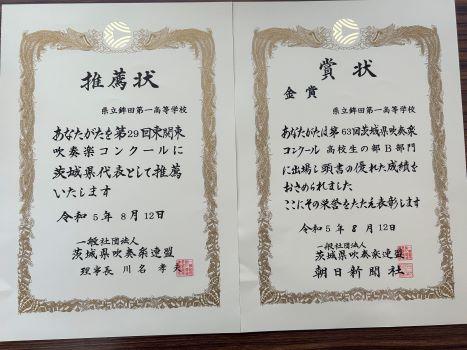 推薦状
県立鉾田第一高等学校
あなたがたを第29回東関東
吹奏楽コンクールに
茨城県代表として推薦
いたします
令和5年8月12日
一般社団法人
茨城県吹奏楽連盟
理事長 川名 孝夫
賞状
金賞
県立鉾田第一高等学校
あなたがたは第63回茨城県吹奏楽
コンクール高校生の部B部門
に出場し頭書の優れた成績を
おさめられました
ここにその栄誉をたたえ表彰します
令和5年8月12日
一般社団法人
茨城県吹奏楽連盟
朝日新聞社